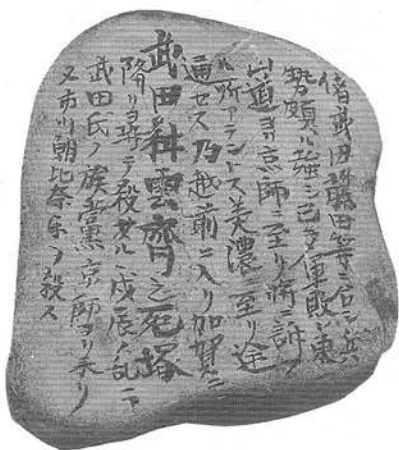 偖武田藤田等ニ シ兵
勢頗ル強シ已ニ軍敗レ東
山道ヨリ京師ニ至リ将ニ訴フ
ル所アラントス美濃ニ至リ途
通セス乃越前ニ入リ加賀ニ
武田耕雲齊之死塔
降リ尋テ殺サル戊辰ノ乱ニ
武田氏ノ族黨京師ヨリ来リ
又市川朝比奈 ヲ殺ス